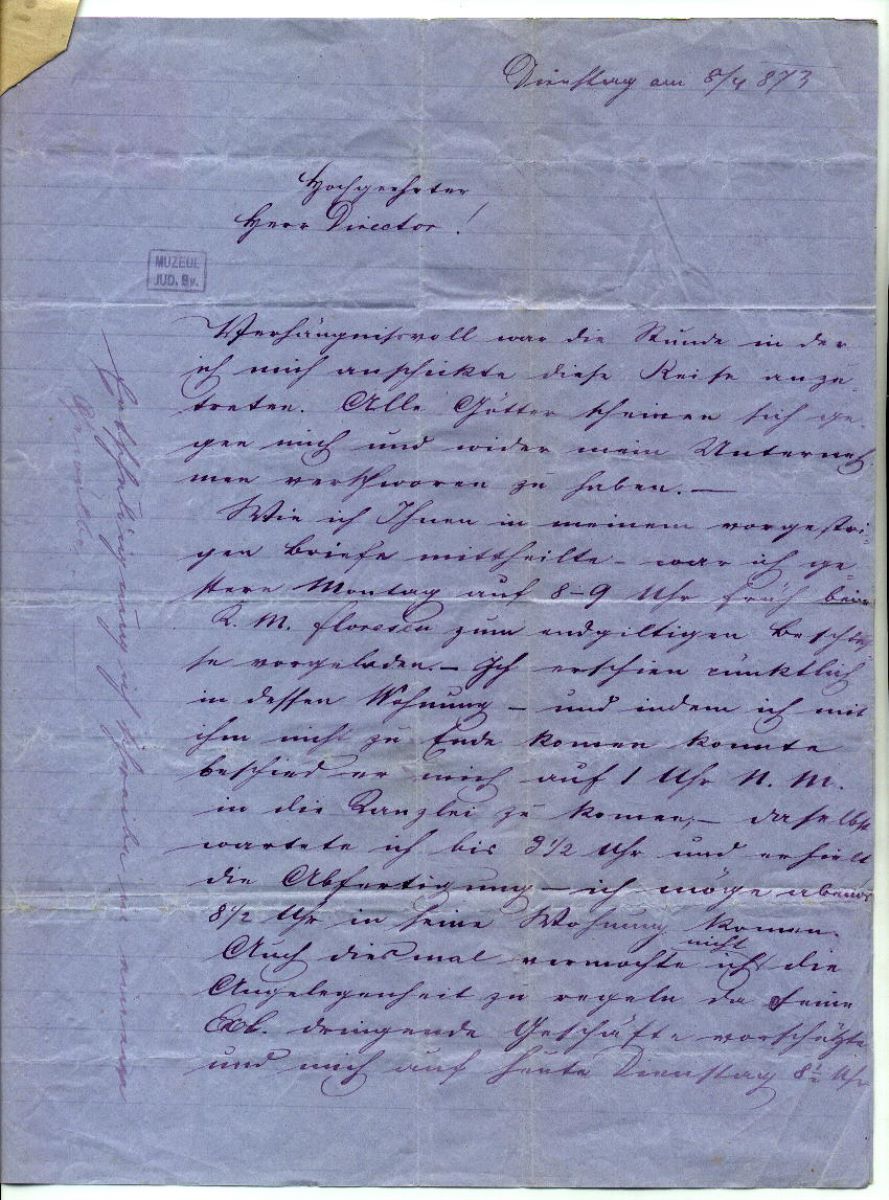 Dienstag am 8/4 873
Hochgeehrter
Herr Director!
MUZEUL
JUD. Bv.
Verhängnissvoll war die Stunde in der
ich mich anschickte diese Reise anzu-
treten. Alle Götter scheinen sich ge-
gen mich und wider mein Unterneh-
men verschworen zu haben. —
Wie ich Ihnen in meinem vorgestri-
gen Briefe mittheilte – war ich ge
stern Montag auf 8–9 Uhr früh beim
K. M. Florescu zum endgiltigen Beschlus
se vorgeladen. – Ich erschien pünktlich
in dessen Wohnung – und indem ich mit
ihm nicht zu Ende komen konnte
beschied er mich auf 1 Uhr N. M.
in die Kanzlei zu komen, – daselbst
wartete ich bis 3½ Uhr und erhielt
die Abfertigung – ich möge abends
8½ Uhr in seine Wohnung komen.
Auch diesmal vermochte ich nicht die
Angelegenheit zu regeln da seine
Exl. dringende Geschäfte vorschützte
und mich auf heute Dienstag 8½ Uhr
ich schreibe in einem